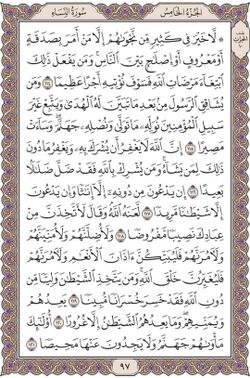 الجزء الخامس
سورة النساء
لَا خَيْرَ فِي كَثِيرٍ مِنْ نَجْوَاهُمْ إِلَّا مَنْ أَمَرَ بِصَدَقَةٍ
أَوْ مَعْرُوفٍ أَوْ إِصْلَاحٍ بَيْنَ النَّاسِ وَمَنْ يَفْعَلْ ذَٰلِكَ
ابْتِغَاءَ مَرْضَاتِ اللَّهِ فَسَوْفَ نُؤْتِيهِ أَجْرًا عَظِيمًا ١١٤ وَمَنْ
يُشَاقِقِ الرَّسُولَ مِنْ بَعْدِ مَا تَبَيَّنَ لَهُ الْهُدَىٰ وَيَتَّبِعْ غَيْرَ
سَبِيلِ الْمُؤْمِنِينَ نُوَلِّهِ مَا تَوَلَّىٰ وَنُصْلِهِ جَهَنَّمَ وَسَاءَتْ
مَصِيرًا ١١٥ إِنَّ اللَّهَ لَا يَغْفِرُ أَنْ يُشْرَكَ بِهِ وَيَغْفِرُ مَا دُونَ
ذَٰلِكَ لِمَنْ يَشَاءُ وَمَنْ يُشْرِكْ بِاللَّهِ فَقَدْ ضَلَّ ضَلَالًا
بَعِيدًا ١١٦ إِنْ يَدْعُونَ مِنْ دُونِهِ إِلَّا إِنَاثًا وَإِنْ يَدْعُونَ
إِلَّا شَيْطَانًا مَرِيدًا ١١٧ لَعَنَهُ اللَّهُ وَقَالَ لَأَتَّخِذَنَّ مِنْ
عِبَادِكَ نَصِيبًا مَفْرُوضًا ١١٨ وَلَأُضِلَّنَّهُمْ وَلَأُمَنِّيَنَّهُمْ
وَلَآمُرَنَّهُمْ فَلَيُبَتِّكُنَّ آذَانَ الْأَنْعَامِ وَلَآمُرَنَّهُمْ
فَلَيُغَيِّرُنَّ خَلْقَ اللَّهِ وَمَنْ يَتَّخِذِ الشَّيْطَانَ وَلِيًّا مِنْ
دُونِ اللَّهِ فَقَدْ خَسِرَ خُسْرَانًا مُبِينًا ١١٩ يَعِدُهُمْ
وَيُمَنِّيهِمْ وَمَا يَعِدُهُمُ الشَّيْطَانُ إِلَّا غُرُورًا ١٢٠ أُولَٰئِكَ
مَأْوَاهُمْ جَهَنَّمُ وَلَا يَجِدُونَ عَنْهَا مَحِيصًا ١٢١
٩٧